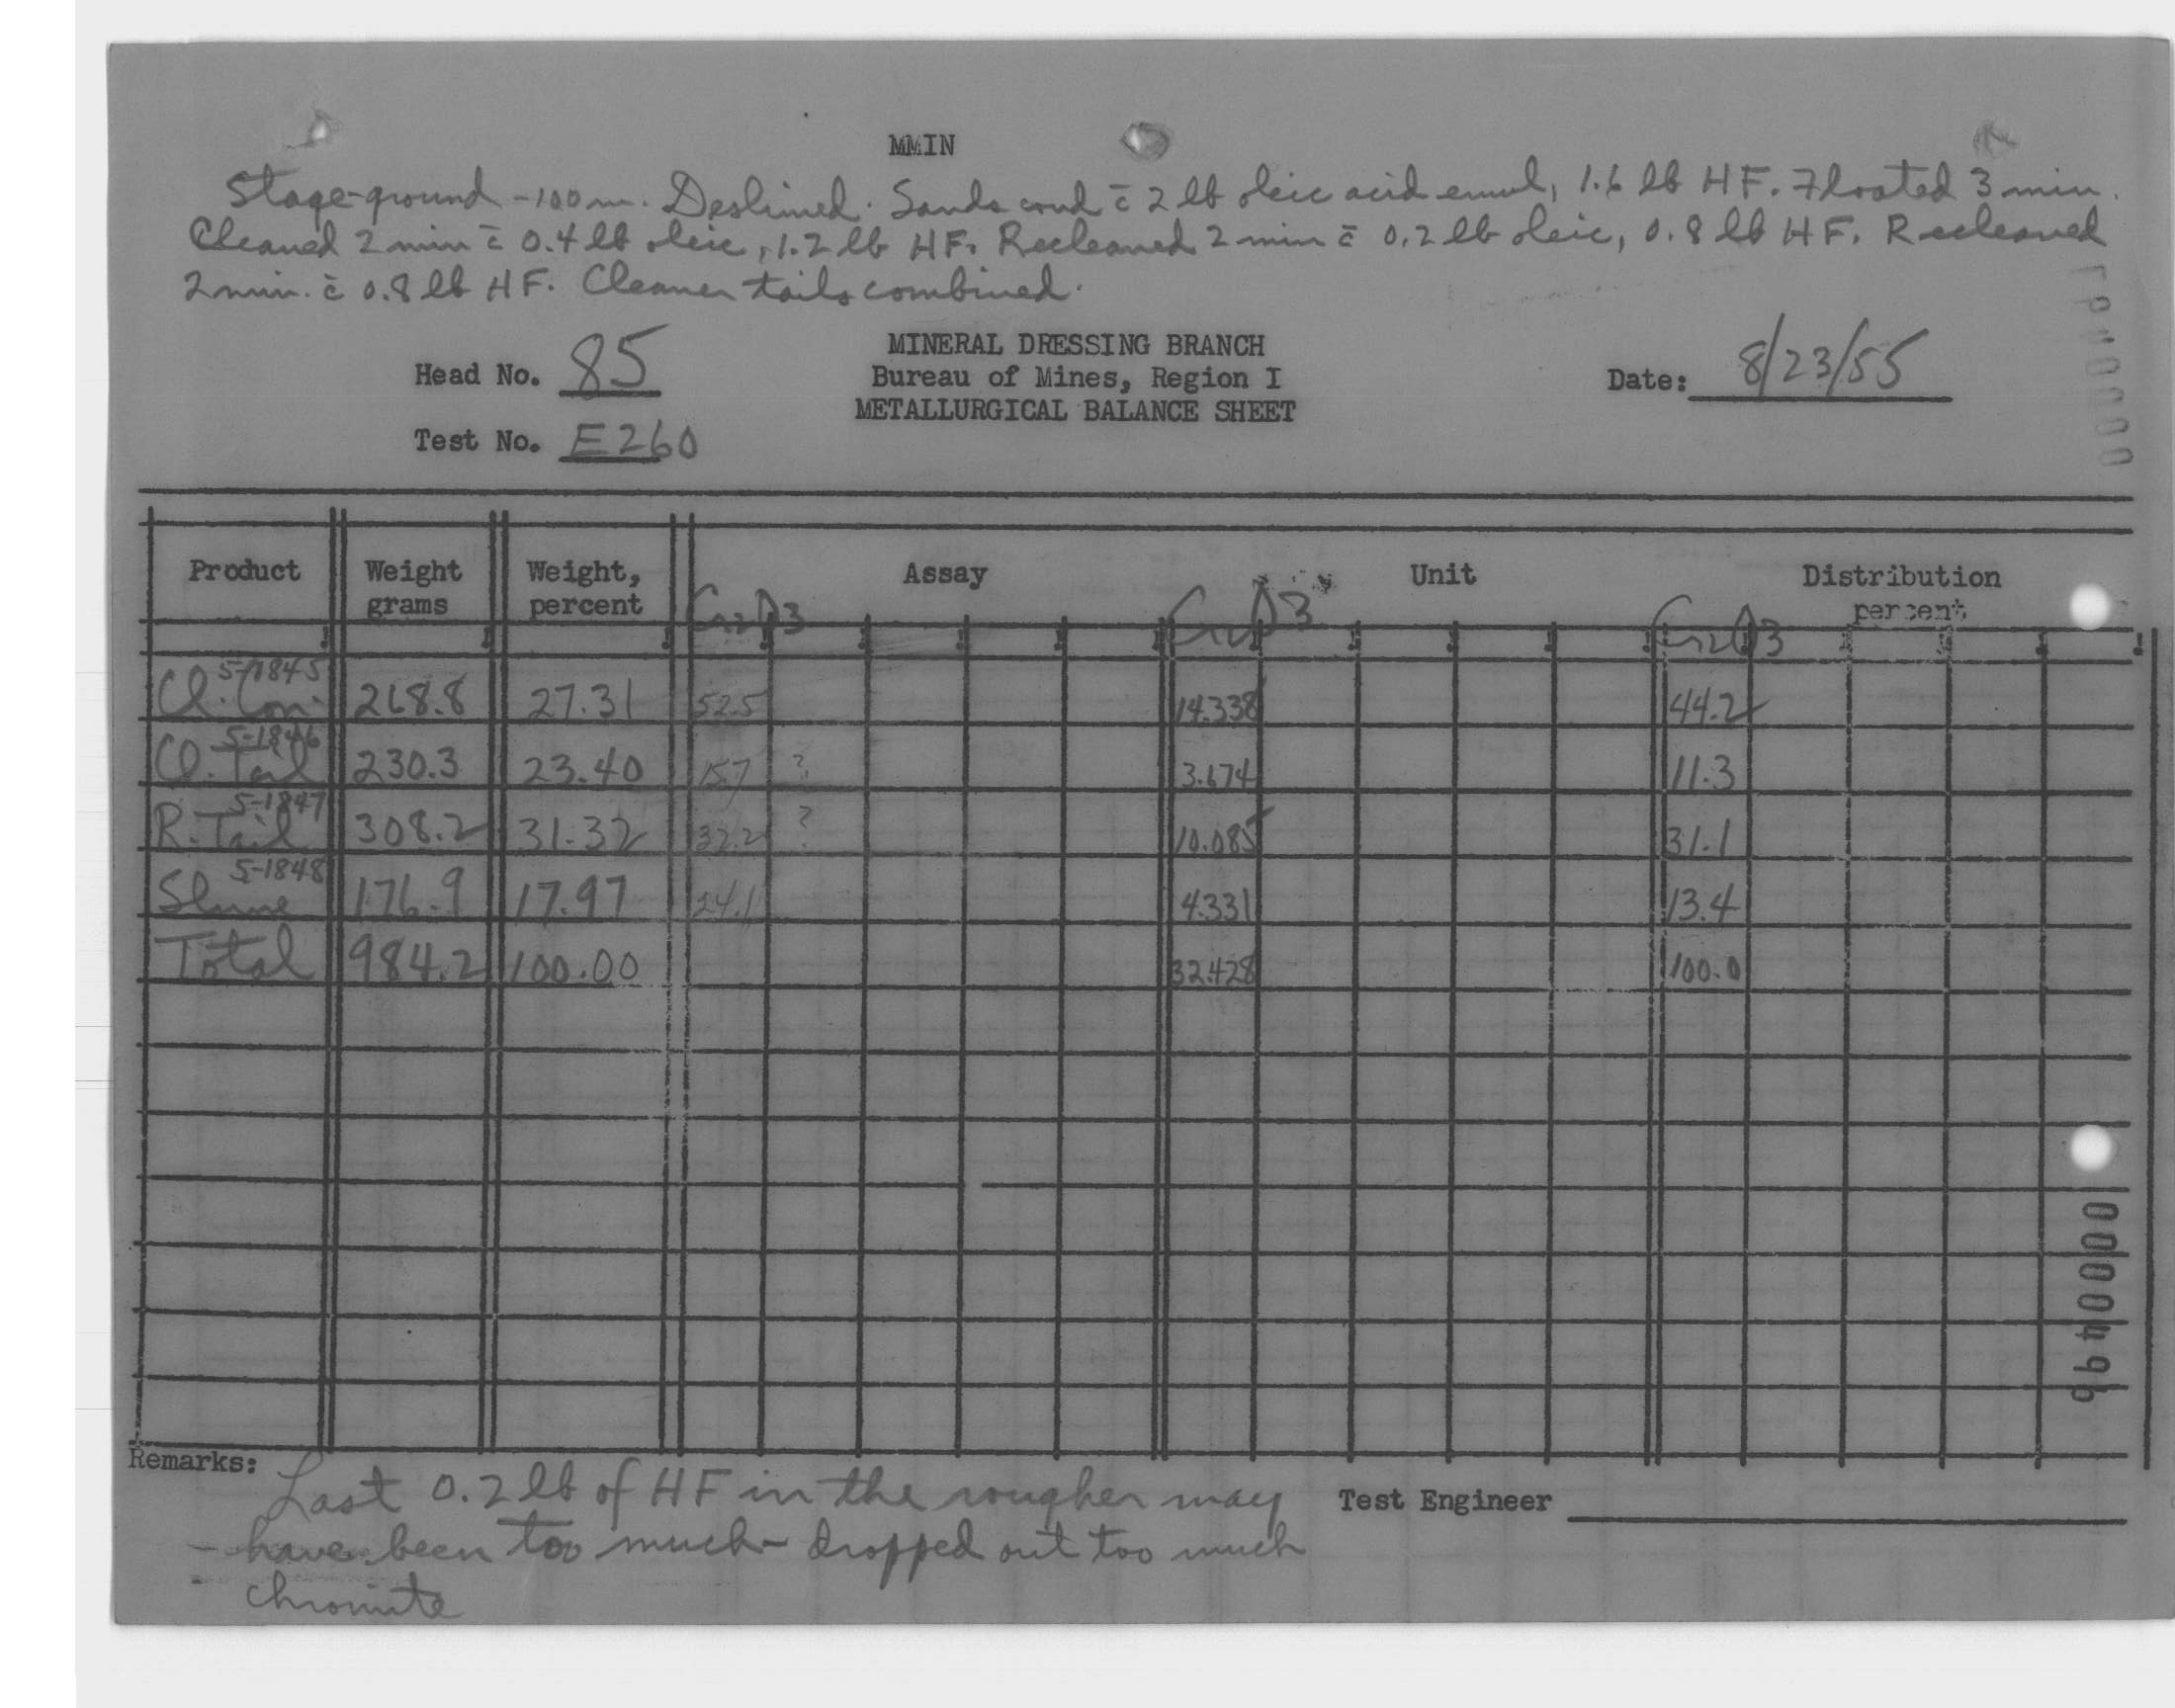 MMIN
Stage-ground -100m. Deslimed. Sands cond c̄ 2 lb oleic acid emul, 1.6 lb HF. Floated 3 min.
Cleaned 2 min c̄ 0.4 lb oleic, 1.2 lb HF. Recleaned 2 min c̄ 0.2 lb oleic, 0.8 lb HF. Recleaned
2 min. c̄ 0.8 lb HF. Cleaner tails combined.
Head No. 85
MINERAL DRESSING BRANCH
Bureau of Mines, Region I
METALLURGICAL BALANCE SHEET
Date: 8/23/55
Test No. E260
Product Weight grams Weight, percent Assay Unit Distribution percent
Cr2O3 Cr2O3 Cr2O3
5-1845
Cl. Con. 268.8 27.31 52.5 14.338 44.2
5-1846
Cl. Tail 230.3 23.40 15.7 ? 3.674 11.3
5-1847
R. Tail 308.2 31.32 32.2 ? 10.085 31.1
5-1848
Slime 176.9 17.97 24.1 4.331 13.4
Total 984.2 100.00 32.428 100.0
Remarks: Last 0.2 lb of HF in the rougher may
have been too much - dropped out too much
chromite
Test Engineer
0000496